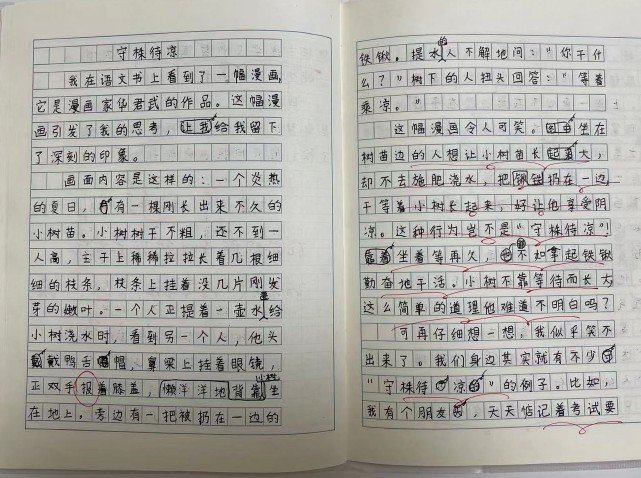 守株待凉
我在语文书上看到了一幅漫画,
它是漫画家华君武的作品。这幅漫
画引发了我的思考,让我给我留下
了深刻的印象。
画面内容是这样的:一个炎热
的夏日,有一棵刚长出来不久的
小树苗。小树树干不粗,还不到一
人高,主干上稀稀拉拉长着几根细
细的枝条,枝条上挂着没几片刚发
芽的嫩叶。一个人正提着一壶水给
小树浇水时,看到另一个人,他头
戴鸭舌帽,鼻梁上挂着眼镜,
正双手报着膝盖,懒洋洋地背靠小树坐
在地上。旁边有一把被扔在一边的
铁锹。提水的人不解地问:“你干什
么?”树下的人扭头回答:“等着
乘凉。”
这幅漫画令人可笑。坐在
树苗边的人想让小树苗长大,
却不去施肥浇水,把铁锹扔在一边,
干等着小树长起来,好让他享受阴
凉。这种行为岂不是“守株待凉”!
坐着等再久,不如拿起铁锹
勤奋地干活。小树不靠等待而长大
这么简单的道理他难道不明白吗?
可再仔细想一想,我似乎笑不
出来了。我们身边其实就有不少
“守株待凉”的例子。比如,
我有个朋友,天天惦记着考试要